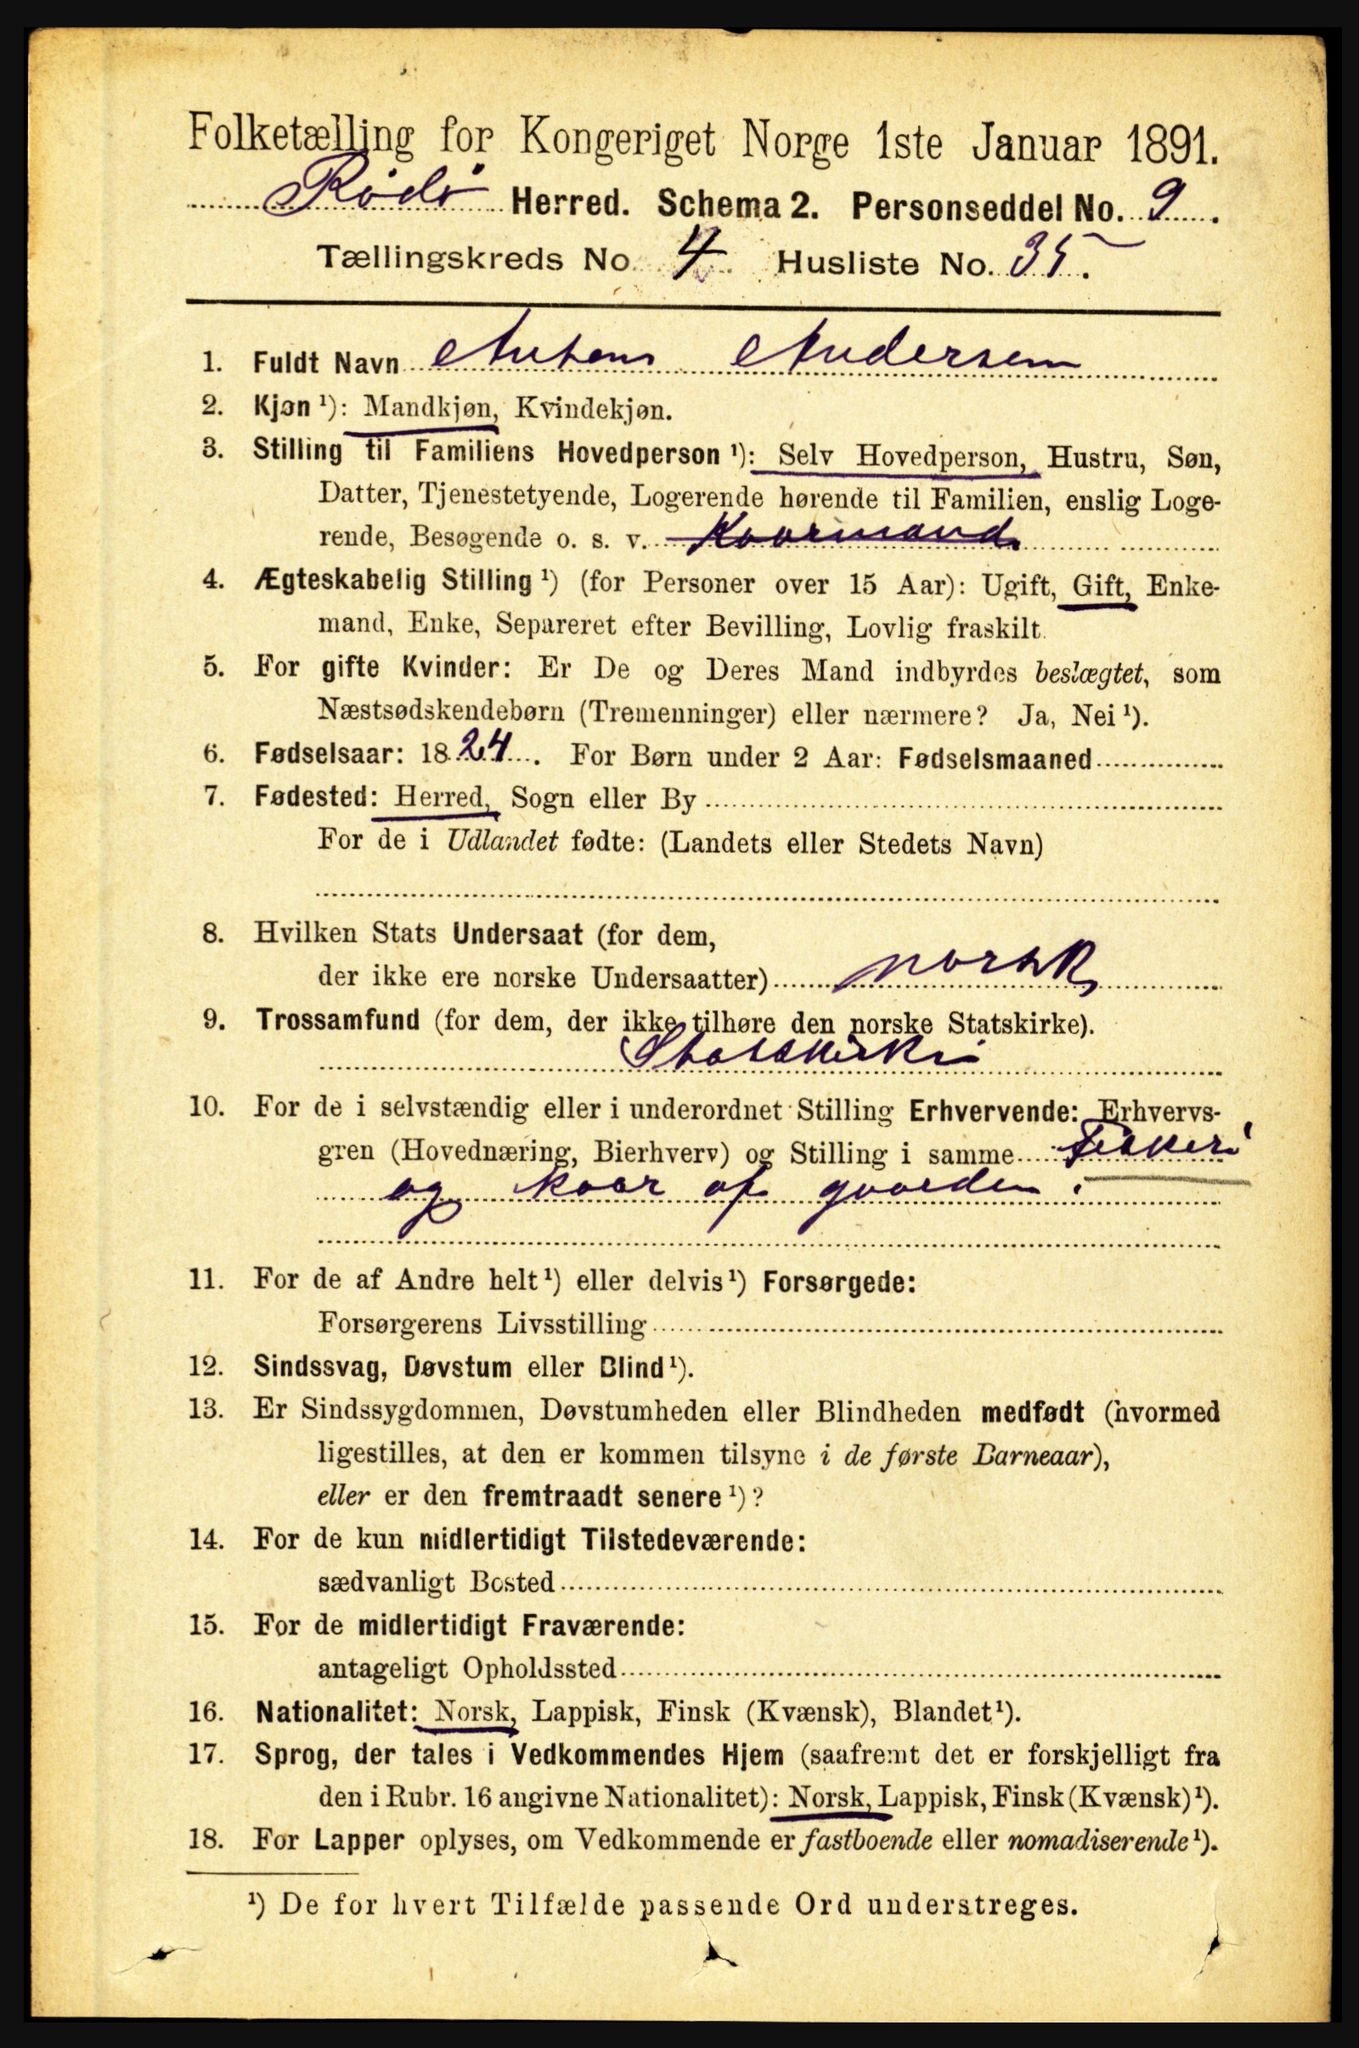 Folketælling for Kongeriget Norge 1ste Januar 1891.
Rødø Herred. Schema 2. Personseddel No. 9.
Tællingskreds No. 4. Husliste No. 35.
1. Fuldt Navn Anton Andersen
2. Kjøn ¹): Mandkjøn, Kvindekjøn.
3. Stilling til Familiens Hovedperson ¹): Selv Hovedperson, Hustru, Søn,
Datter, Tjenestetyende, Logerende hørende til Familien, enslig Loge-
rende, Besøgende o. s. v. Kaarmand
4. Ægteskabelig Stilling ¹) (for Personer over 15 Aar): Ugift, Gift, Enke-
mand, Enke, Separeret efter Bevilling, Lovlig fraskilt.
5. For gifte Kvinder: Er De og Deres Mand indbyrdes beslægtet, som
Næstsødskendebørn (Tremenninger) eller nærmere? Ja, Nei ¹).
6. Fødselsaar: 1824. For Børn under 2 Aar: Fødselsmaaned
7. Fødested: Herred, Sogn eller By
For de i Udlandet fødte: (Landets eller Stedets Navn)
8. Hvilken Stats Undersaat (for dem,
der ikke ere norske Undersaatter) norsk
9. Trossamfund (for dem, der ikke tilhøre den norske Statskirke).
Statskirke
10. For de i selvstændig eller i underordnet Stilling Erhvervende: Erhvervs-
gren (Hovednæring, Bierhverv) og Stilling i samme Fiskeri
og kaar af gaarden.
11. For de af Andre helt ¹) eller delvis ¹) Forsørgede:
Forsørgerens Livsstilling
12. Sindssvag, Døvstum eller Blind ¹).
13. Er Sindssygdommen, Døvstumheden eller Blindheden medfødt (hvormed
ligestilles, at den er kommen tilsyne i de første Barneaar),
eller er den fremtraadt senere ¹)?
14. For de kun midlertidigt Tilstedeværende:
sædvanligt Bosted
15. For de midlertidigt Fraværende:
antageligt Opholdssted
16. Nationalitet: Norsk, Lappisk, Finsk (Kvænsk), Blandet ¹).
17. Sprog, der tales i Vedkommendes Hjem (saafremt det er forskjelligt fra
den i Rubr. 16 angivne Nationalitet): Norsk, Lappisk, Finsk (Kvænsk) ¹).
18. For Lapper oplyses, om Vedkommende er fastboende eller nomadiserende ¹).
¹) De for hvert Tilfælde passende Ord understreges.